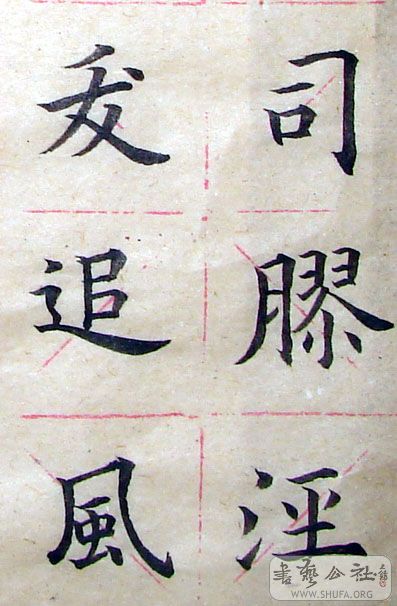 司膠
追風
書藝公社
WWW.SHUFA.ORG